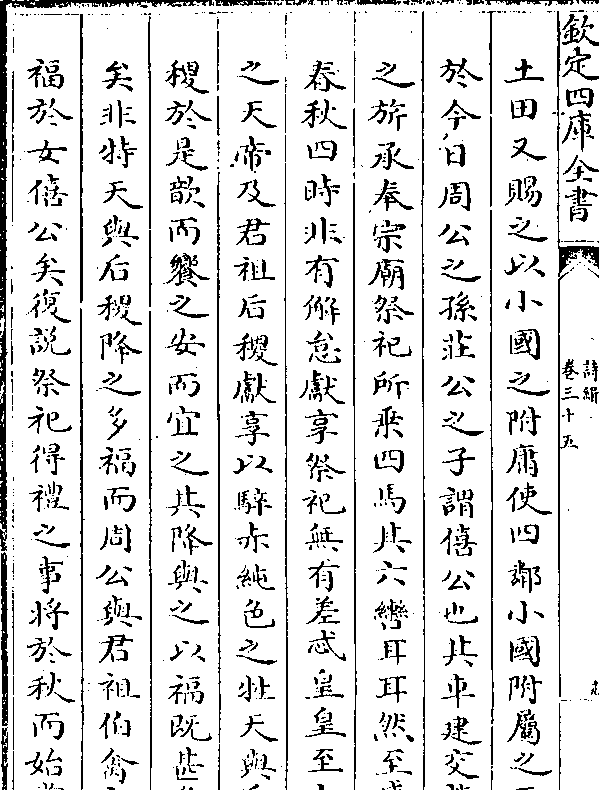 欽定四庫全書
詩緝
卷三十五
土田又賜之以小國之附庸使四鄰小國附屬之
於今日周公之孫莊公之子謂僖公也其車建交
之旂承奉宗廟祭祀所乗四馬其六轡耳耳然至
春秋四時非有懈怠獻享祭祀無有差忒皇皇至
之天帝及君祖后稷獻享以騂赤純色之牡天與
稷於是歆而饗之安而宜之其降與之以福既甚
矣非特天與后稷降之多福而周公與君祖伯禽
福於女僖公矣復説祭祀得禮之事將於秋而始